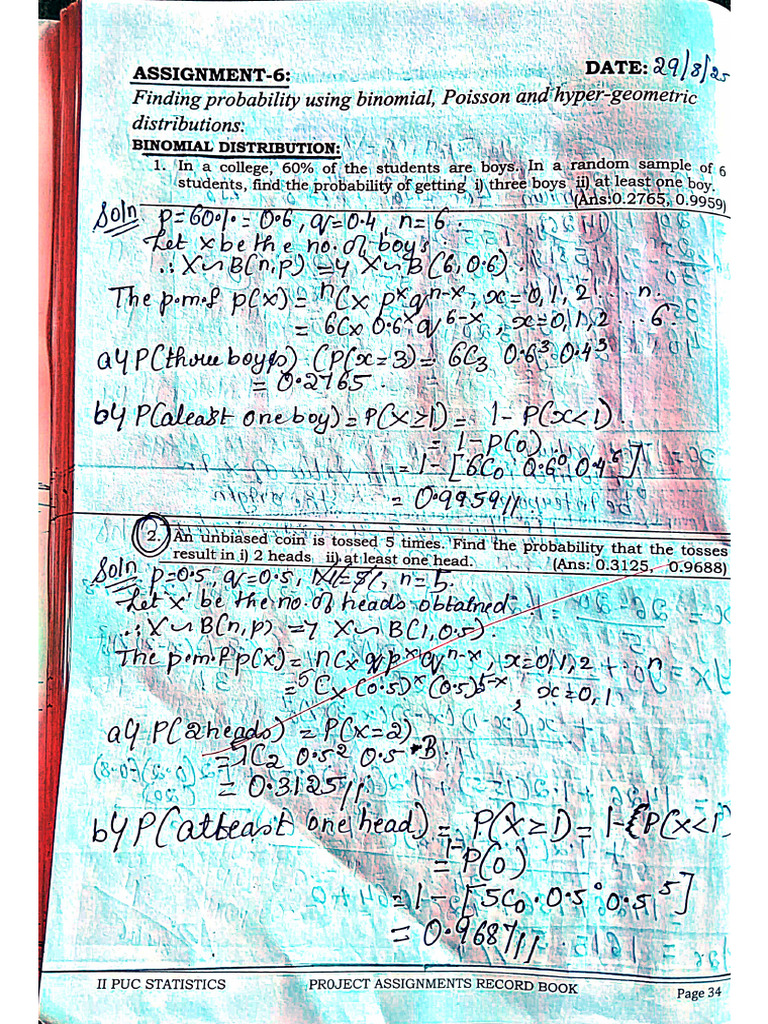 ASSIGNMENT-6: DATE: 29/8/25
Finding probability using binomial, Poisson and hyper-geometric
distributions:
BINOMIAL DISTRIBUTION:
1. In a college, 60% of the students are boys. In a random sample of 6
students, find the probability of getting i) three boys ii) at least one boy.
(Ans:0.2765, 0.9959)
Soln p=60% = 0.6, q=0.4, n=6.
Let x be the no. of boys
∴ X ~ B(n,p) => X ~ B(6, 0.6).
The p.m.f p(x) = nCx p^x q^n-x, x=0,1,2... n.
= 6Cx 0.6^x q^6-x, x=0,1,2 ... 6.
a) P(three boys) (P(x=3) = 6C3 0.6^3 0.4^3
= 0.2765.
b) P(aleast one boy) = P(X≥1) = 1-P(x<1).
= 1-P(0).
= 1-[6C0 0.6^0 0.4^6]
= 0.9959//
2. An unbiased coin is tossed 5 times. Find the probability that the tosses
result in i) 2 heads ii) at least one head. (Ans: 0.3125, 0.9688)
Soln p=0.5, q=0.5, n=5.
Let x be the no. of heads obtained
∴ X ~ B(n,p) => X ~ B(1,0.5).
The p.m.f p(x) = nCx p^x q^n-x, x=0,1,2 n
= 5Cx (0.5)^x (0.5)^5-x, x=0,1
a) P(2 heads) = P(x=2)
C2 0.5^2 0.5
= 0.3125//
b) P(atleast one head) = P(X≥1) = 1-{P(X<1)
= 1-P(0)
= 1-[5C0 · 0.5^0 0.5^5]
= 0.9687//
II PUC STATISTICS PR0JECT ASSIGNMENTS RECORD BOOK Page 34